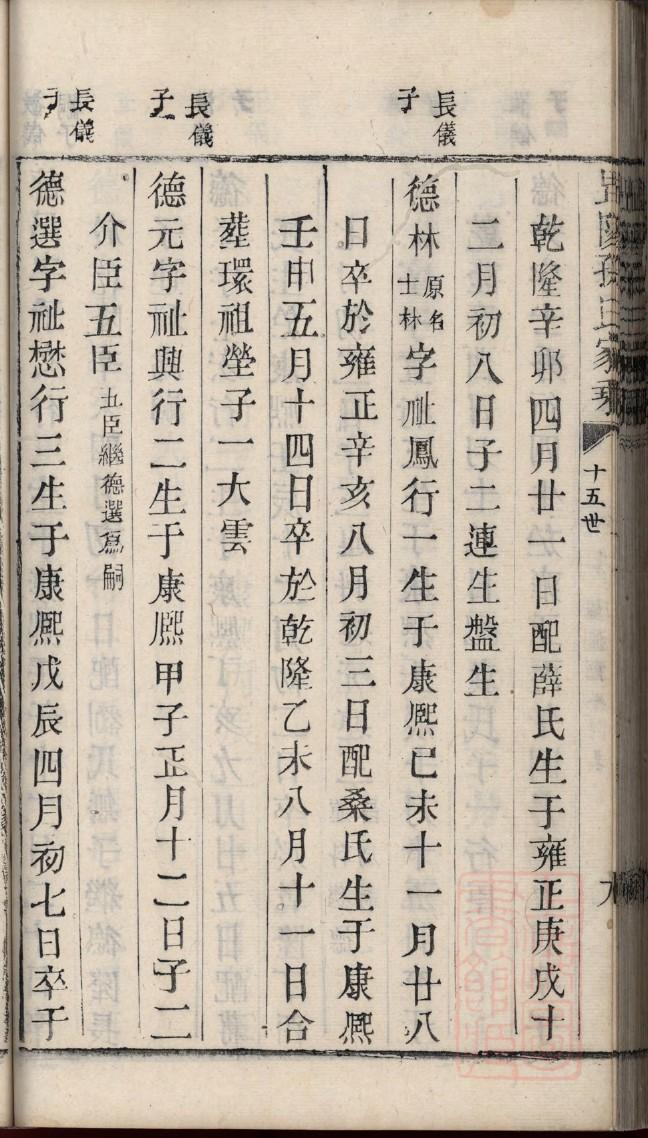 十五世
乾隆辛卯四月廿一日配薛氏生于雍正庚戌十
二月初八日子二連生盤生
長儀
子
德林原名士林字祉鳳行一生于康熙己未十一月廿八
日卒於雍正辛亥八月初三日配桑氏生于康熙
壬申五月十四日卒於乾隆乙未八月十一日合
葬環祖塋子一大雲
長儀
子
德元字祉興行二生于康熙甲子正月十二日子二
介臣五臣五臣繼德選爲嗣
長儀
子
德選字祉懋行三生于康熙戊辰四月初七日卒于